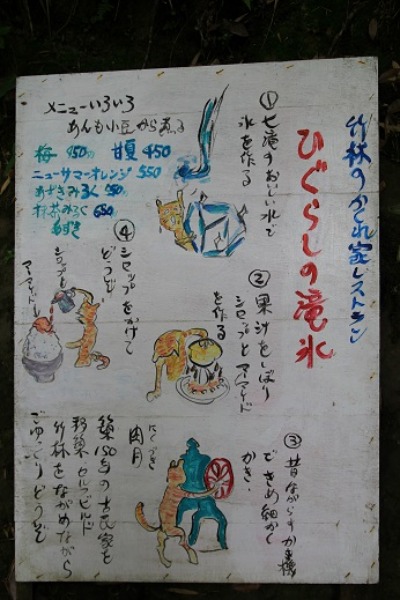 竹林のかくれ家レストラン
ひぐらしの滝氷
①七滝のおいしい水で
氷を作る
②果汁をしぼり
シロップとアマイド
を作る
③昔ながらの
できめ細かく
かき、
④シロップをかけて
どうぞ
シロップも
メニューいろいろ
あんも小豆から煮る
梅 450 甘夏 450
ニューサマーオレンジ 550
あずきみるく 550
抹茶みるく 650
あずき
肉月
築150年の古民家を
移築セルフビルド
竹林をながめながら
ごゆっくりどうぞ